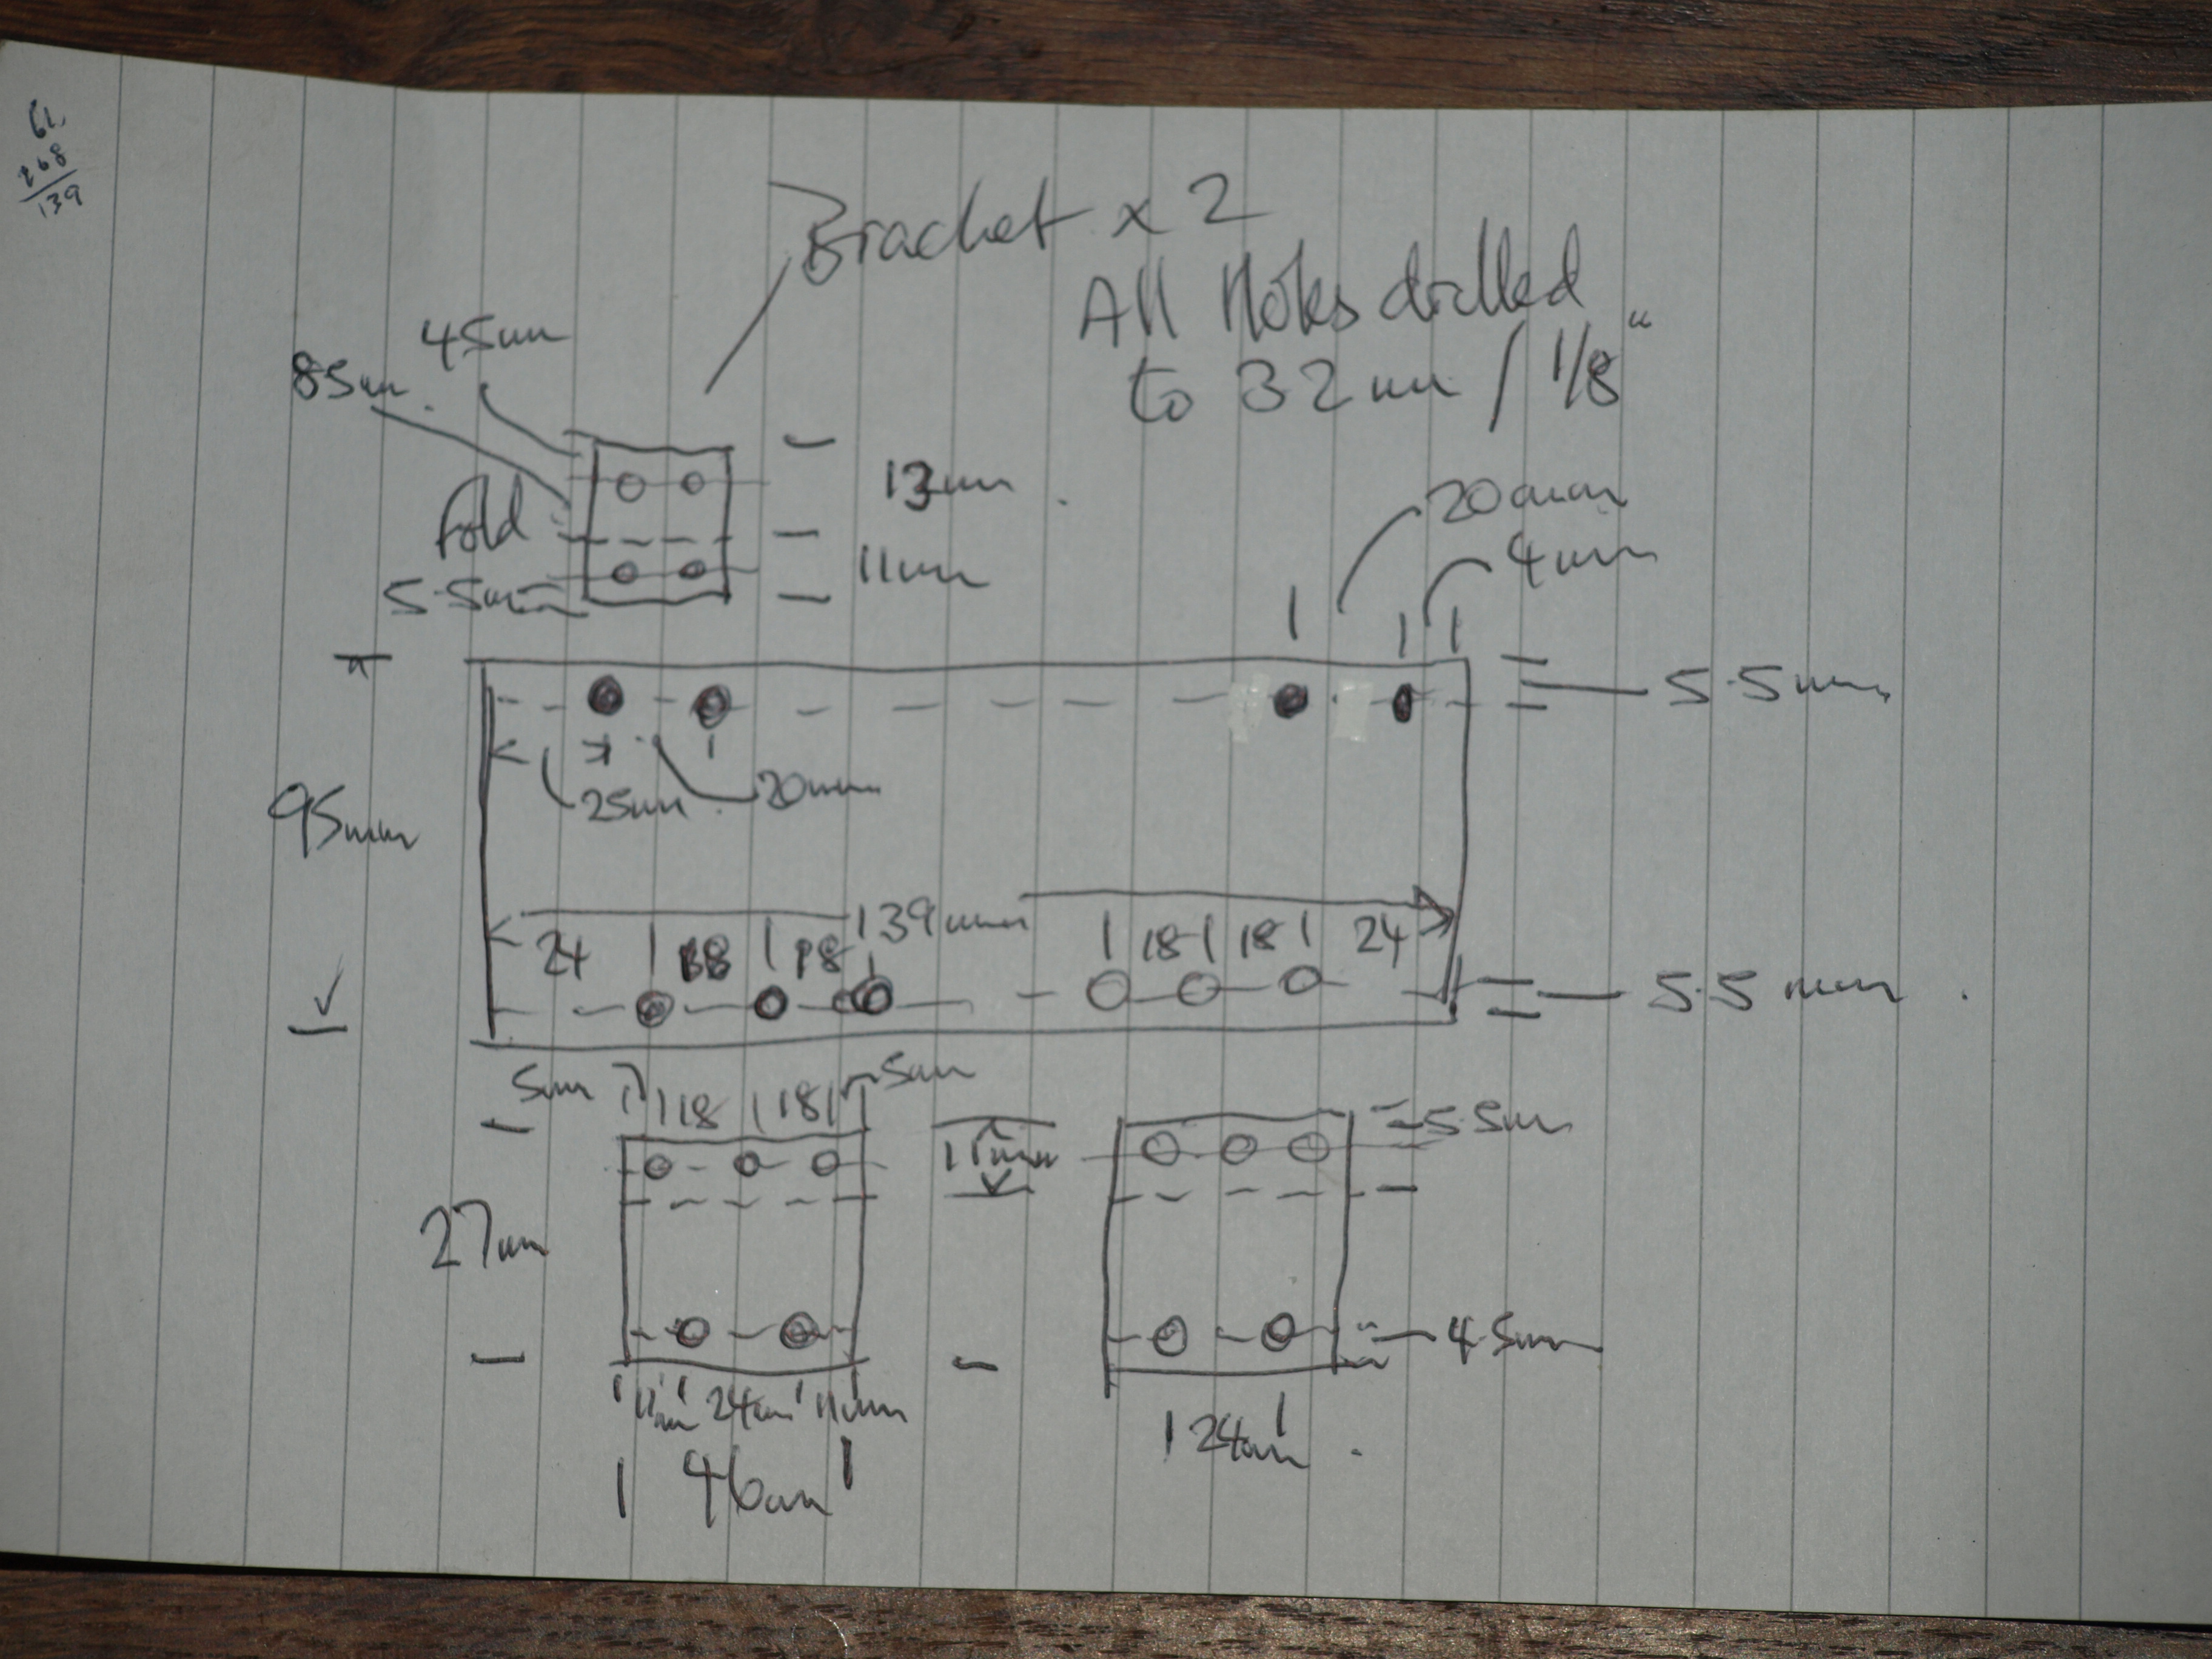 61
268
139
Bracket x 2
All Holes drilled
to 32mm / 1/8"
45mm
85m
fold
13mm
5.5m
11mm
20mm
4mm
5.5mm
25mm
20mm
95mm
139mm
24 18 18
18 18 24
5.5mm
5mm 18 18 5mm
27mm
11mm
5.5m
4.5mm
11m 24mm 11mm
46mm
24mm